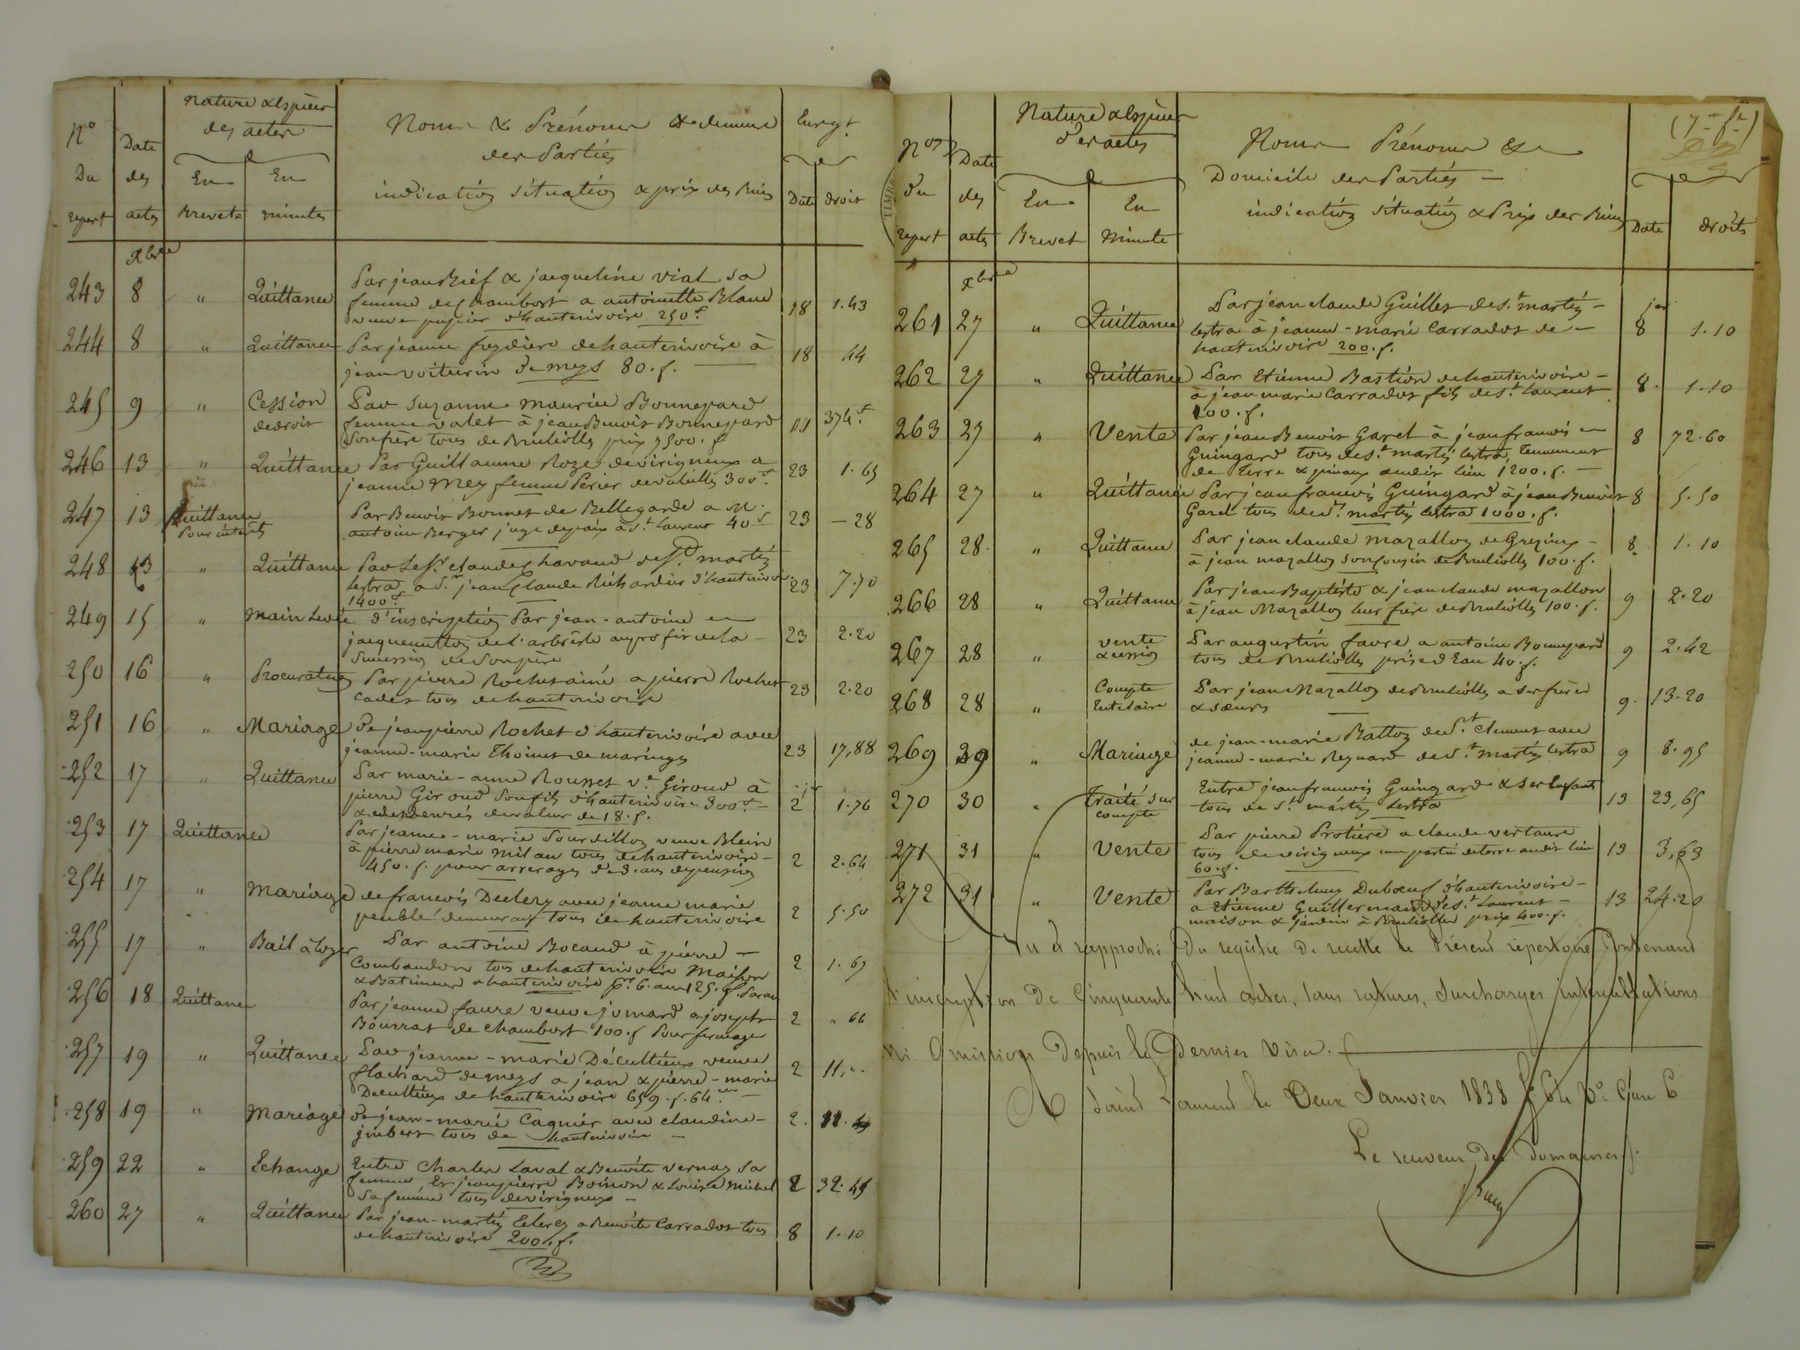 N° Du repert
Date des actes
Nature & Espèces des actes
En Brevets
En minutes
Noms & Prénoms & demeure
des Parties
indication situation & prix des Biens
Enregt.
Date
droit
Xbre
243 8 " Quittance Par jean Brief & jacqueline Vial sa
femme de Chambost a antoinette Blanc
veuve d'hauterivoire 250 f 18 1.43
244 8 " Quittance Par jeanne feydiere de hauterivoire à
jean voiturin de meys 80. f. 18 44
245 9 " Cession de droit Par suzanne maurice Bonnepard
femme valet à jean Benoit Bonnepard
son frère tous de Brulliolles prix 7500. f 374 f.
246 13 " Quittance Par Guillaume Roze de virigneux a
jeanne Mey femme Perier 300 f. 23 1.65
247 13 Quittance Pour intérêts Par Benoit Bonnet de Bellegarde a M.
antoine Berger juge de paix à St Laurent 40 f 23 — 28
248 13 " Quittance Par le Sr. claude chavand de St martin
lestra a Sr jean Claude Richardier d'hauterivoire
1400 f 23 7.70
249 15 " Main Levée d'inscription Par jean-antoine
jacquemetton de l'arbresle au profit de la
Succession de son père 23 2.20
250 16 " Procuration Par pierre Rochet ainé a pierre Rochet
cadet tous de hauterivoire 23 2.20
251 16 " Mariage De jean pierre Rochet d'hauterivoire avec
jeanne-marie Thoinet de maringes 23 17,88
252 17 " Quittance Par marie-anne Rousset ve Giroud à
pierre Giroud son fils d'hauterivoire 300 f
& des denrées de valeur de 18. f. 2 1.76
253 17 Quittance Par jeanne-marie Pourdillon veuve Blein
à pierre marie milan tous de hauterivoire
450. f. pour arrerages de 3. ans de pension 2 2.64
254 17 " Mariage de francois Declery avec jeanne marie
peuble demeurant tous de hauterivoire 2 5.50
255 17 " Bail à loyer Par antoine Bocaud à pierre
Combaudon tous de hauterivoire Maison
& Batiment à hauterivoire pr. 6. ans 125. f. Par an 2 1.67
256 18 Quittance Par jeanne faure veuve jomard a joseph
Bourrat de Chambost 100. f Pour fermage 2 " 66
257 19 " Quittance Par jeanne-marie Décultieux veuve
flachard de meys a jean & pierre-marie
Decultieux de hauterivoire 659. f. 64 2 11,"
258 19 " Mariage De jean-marie Cagnier avec claudine
jmbert tous de hauterivoire 2. 11.
259 22 " Echange Entre Charles Laval & Benoite vernay sa
femme, Et jean pierre Boinon & Louise Michel
sa femme tous de virigneux 2 32.45
260 27 " Quittance Par jean-martin Eclercy a Benoite Carrados tous
de hauterivoire 200. f. 8 1.10
(7me fe)
TIMBRE
Nos du repert
Date des actes
Nature & Espèces d'es actes
En Brevet
En Minute
Noms Prénoms &
Domicile des Parties
indication situation & Prix des Biens
Date
droits
Xbre
261 27 " Quittance Par jean claude Guillet de St martin
lestra à jeanne-marie Carrados de
hauterivoire 200. f. jer 8 1.10
262 27 " Quittance Par Etienne Bastion de hauterivoire
à jean marie Carrados fils de St Laurent
100. f. 8. 1.10
263 27 " Vente Par jean Benoit Garel à jean francois
Guingard tous de St martin lestra, tennement
de terre & pinaux au dit lieu 1200. f. 8 72.60
264 27 " Quittance Par jean francois Guingard à jean Benoit
Garel tous de St. martin lestra 1000. f. 8 5.50
265 28. " Quittance Par jean claude Mazallon de Grezieux
à jean mazallon son cousin de Brulliolles 100. f. 8. 1.10
266 28 " Quittance Par jean Baptiste & jean claude mazallon
à jean Mazallon leur frère de Brulliolles 100. f. 9 2.20
267 28 " Vente & cession Par augustin favre a antoine Bonnepard
tous de Brulliolles prise d'Eau 40. f. 9 2.42
268 28 " Compte tutelaire Par jean Mazallon de Brulliolles a ses frères
& sœurs 9. 13.20
269 29 " Mariage de jean-marie Batton de St. Clement avec
jeanne-marie Reynard de St. martin lestra 9 8.95
270 30 " Traité sur compte Entre jean francois Guingard & ses Enfants
tous de St. martin lestra 13 23,65
271 31 " Vente Par pierre Protière a claude vertaure
tous de virigneux une partie de terre au dit lieu
60. f. 13 3,63
272 31 " Vente Par Barthelemy Duboeuf d'hauterivoire
a Etienne Guillermain de St. Laurent
maison & Jardin à Brulliolles prix 400. f. 13 24.20
Vu et rapproché du registre de recette le Présent répertoire Contenant
l'inscription de Cinquante huit actes, sans ratures, surcharges, interlignations
ni omissions Depuis le Dernier Visa.
A Saint Laurent le Deux Janvier 1838 fo 64 Vo Case 6
Le receveur des Domaines.